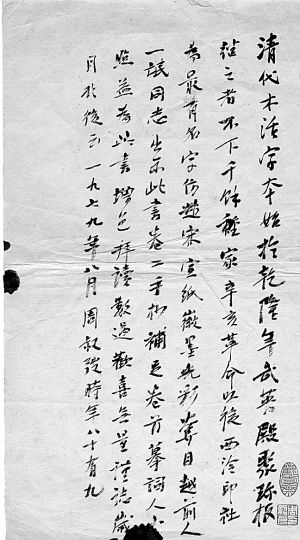 清代木活字本始於乾隆年武英殿聚珍板
繼之者不下千餘種家辛亥革命以後西泠印社
為最有名字仿趙宋宣紙徽墨光彩奪目越前人
一氓同志出示此書卷二手抄補足卷前摹詞人小
照益為此書增色拜讀數過歡喜無量謹誌歲
月於後云一九七九年八月周叔弢時年八十有九